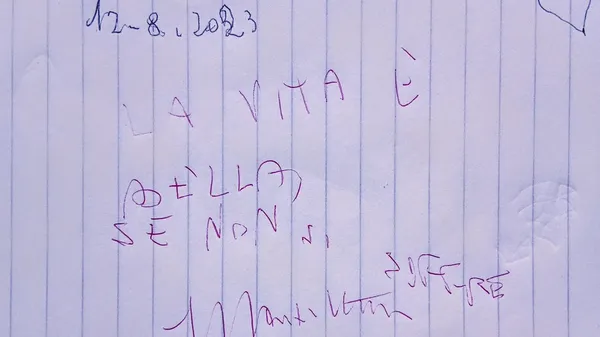 12-8.2023
LA VITA È
BELLA,
SE NON SI
SOFFRE